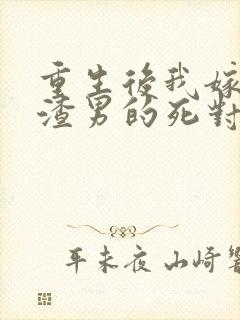 重生後我嫁
渣男的死對
平未夜 山崎響